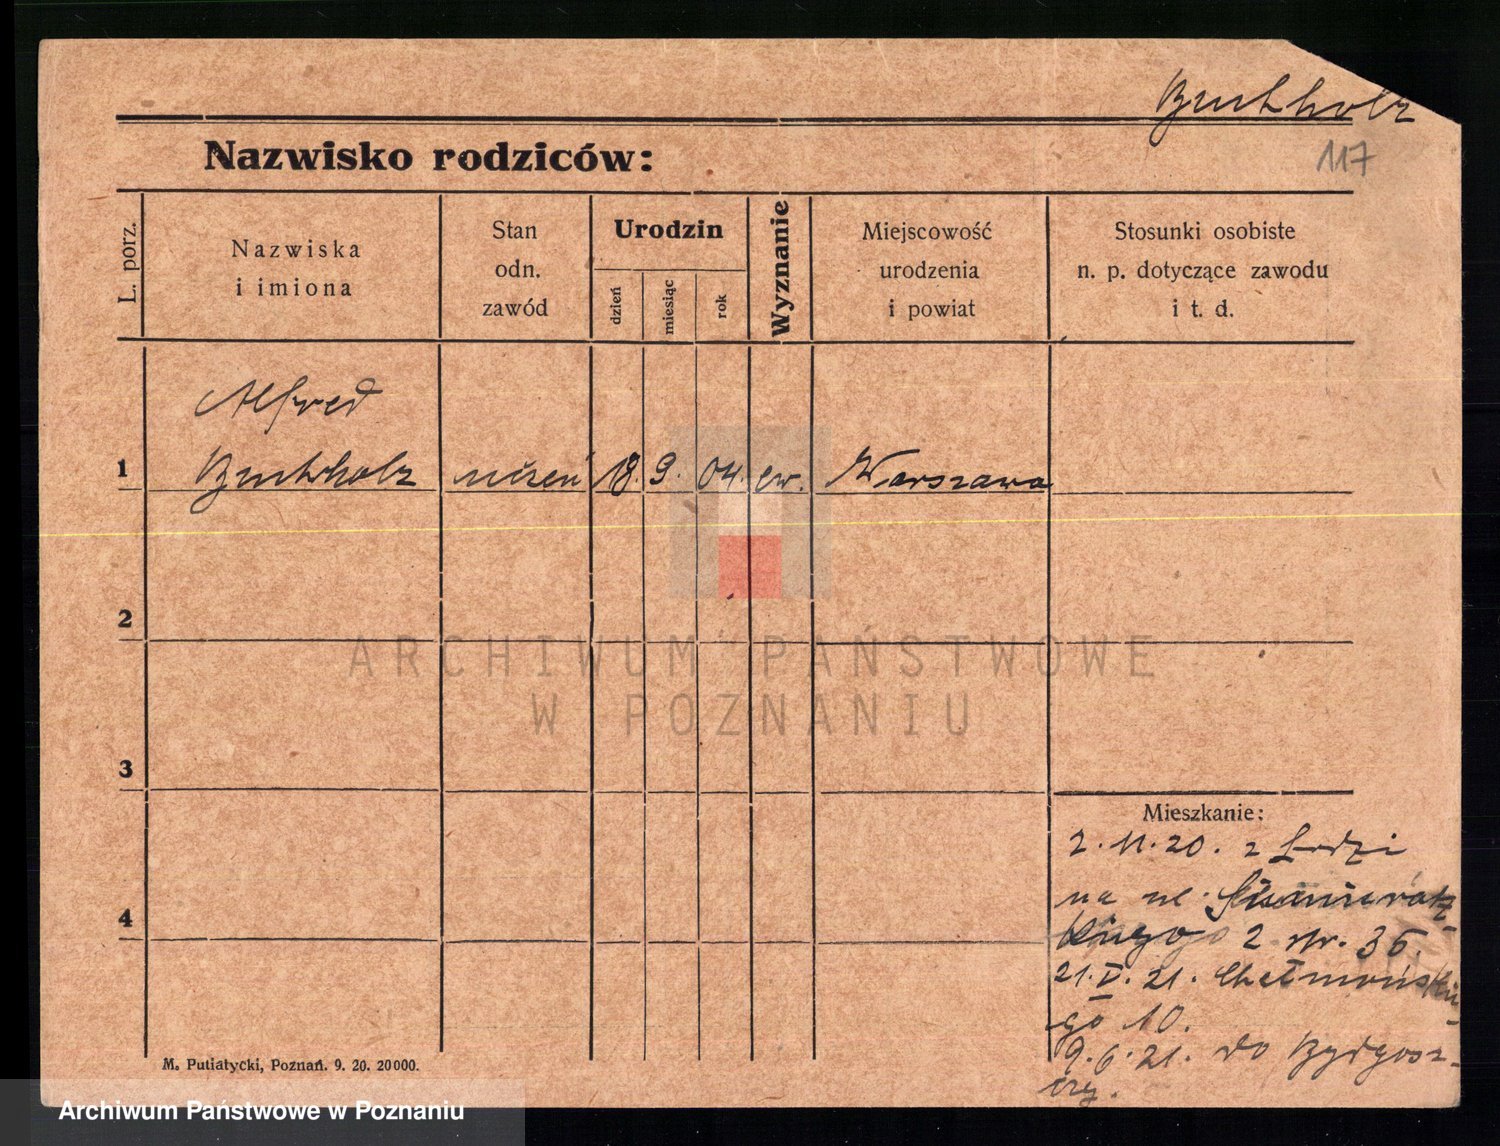 Buchholz
117
Nazwisko rodziców:
L. porz.
Nazwiska
i imiona
Stan
odn.
zawód
Urodzin
dzień
miesiąc
rok
Wyznanie
Miejscowość
urodzenia
i powiat
Stosunki osobiste
n. p. dotyczące zawodu
i t. d.
Alfred
1 Buchholz uczeń 18. 9. 04. ew. Warszawa
2
3
4
Mieszkanie:
2.11.20. z Łodzi
na ul.
2 nr. 36.
21.V.21. Chełmońskie-
go 10.
9.6.21. do Bydgosz-
czy.
M. Putiatycki, Poznań. 9. 20. 20000.
ARCHIWUM PAŃSTWOWE
W POZNANIU
Archiwum Państwowe w Poznaniu